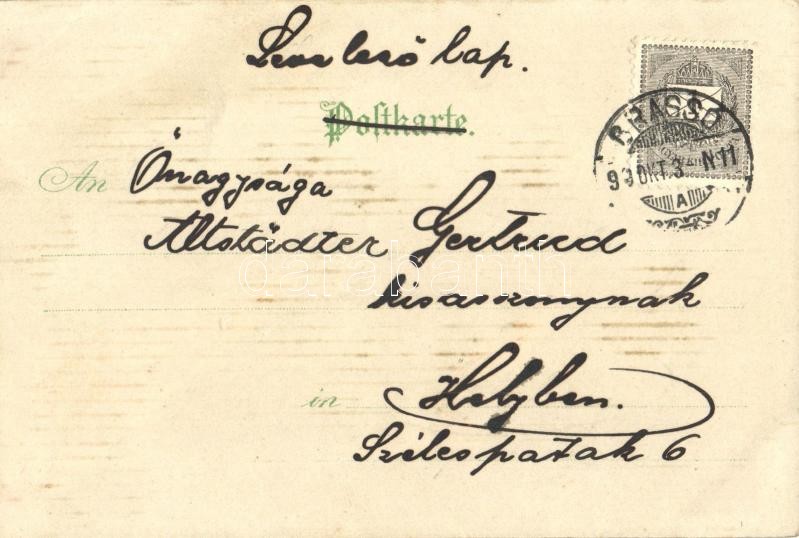 Levelező lap.
Postkarte.
BRASSÓ
OKT. 3 N11
A
An Őnagysága
Altstädter Gertrud
kisasszonynak
in Helyben.
Szélespatak 6
darabanth